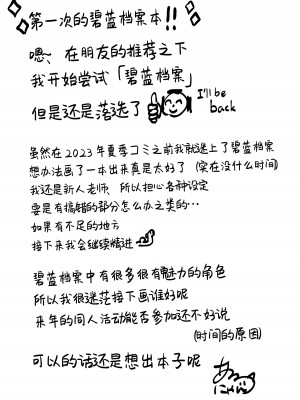 第一次的碧蓝档案本!!
嗯、在朋友的推荐之下
我开始尝试「碧蓝档案」
但是还是落选了
I'll be
back
虽然在2023年夏季コミ之前我就迷上了碧蓝档案
想办法画了一本出来真是太好了 (实在没什么时间)
我还是新人老师 所以担心各种设定
要是有搞错的部分怎么办之类的…
如果有不足的地方
接下来我会继续精进
碧蓝档案中有很多很有魅力的角色
所以我很迷茫接下画谁好呢
来年的同人活动能否参加还不好说
(时间的原因)
可以的话还是想出本子呢